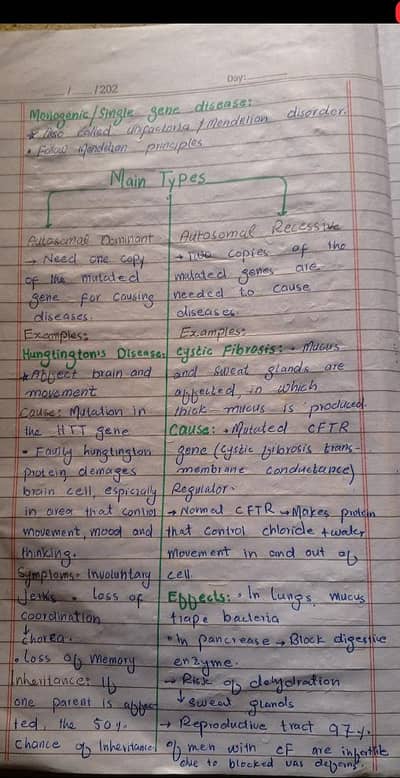 / /202
Day:
Monogenic/Single gene disease:
* Also called unifactorial/Mendelian disorder.
• Follow Mendelian principles
Main Types
Autosomal Dominant
→ Need one copy
of the mutated
gene for causing
diseases.
Examples:
Hungtington's Disease:
* Affect brain and
movement
Cause: Mutation in
the HTT gene
• Faulty hungtington
protein demages
brain cell, espicially
in area that control
movement, mood and
thinking.
Symptoms. Involuntary
Jerks • loss of
coordination
Chorea.
• Loss of memory
Inheritance: If
one parent is affec
ted, the 50%
chance of Inheritance
Autosomal Recessive
→ Two copies of the
mutated genes are
needed to cause
diseases.
Examples:
Cystic Fibrosis: • Mucus
and sweat glands are
affected, in which
thick mucus is produced.
Cause: • Mutated CFTR
gene (Cystic fibrosis trans-
membrane conductance)
Regulator.
→ Normal CFTR → Makes protein
that control chloride + water
movement in and out of
cell.
Effects: • In Lungs, mucus
trape bacteria
• In pancrease → Block digestive
enzyme.
→ Risk of dehydration
↓ sweat glands
→ Reproductive tract 97%
of men with CF are infertile
due to blocked vas